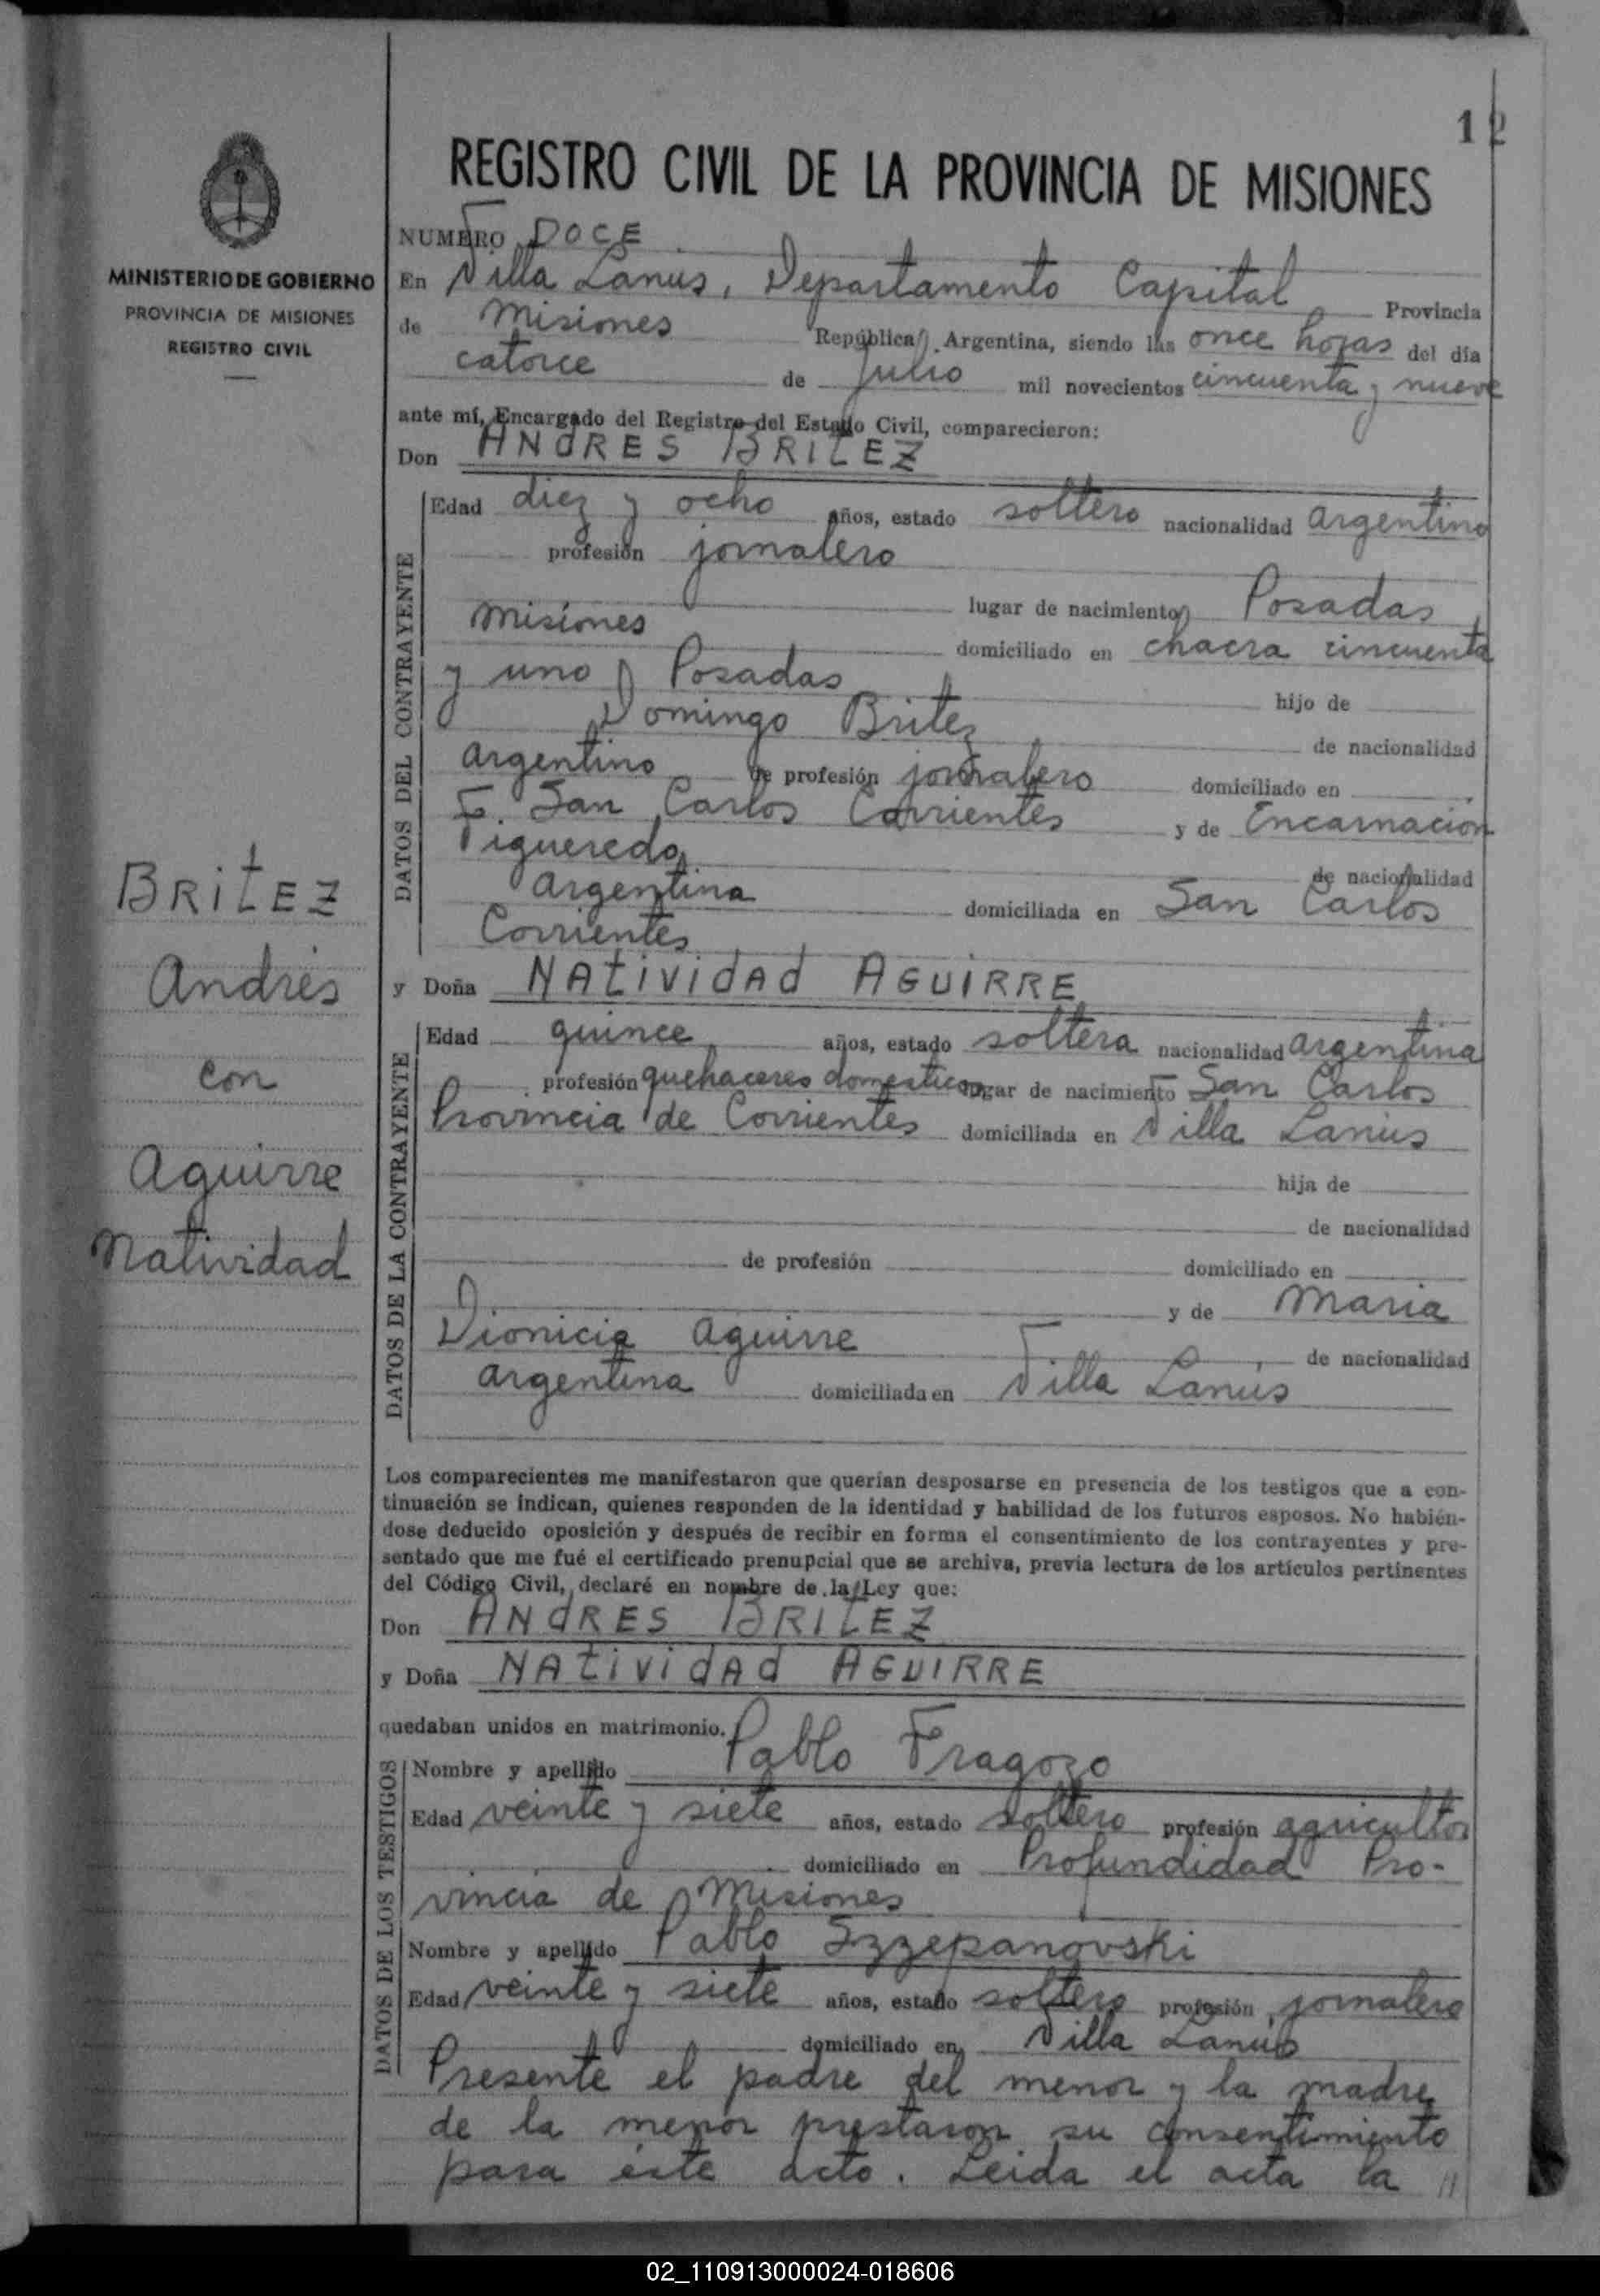 12
REGISTRO CIVIL DE LA PROVINCIA DE MISIONES
MINISTERIO DE GOBIERNO
PROVINCIA DE MISIONES
REGISTRO CIVIL
NUMERO DOCE
En Villa Lanús, Departamento Capital Provincia
de Misiones República Argentina, siendo las once horas del día
catorce de Julio mil novecientos cincuenta y nueve
ante mí, Encargado del Registro del Estado Civil, comparecieron:
Don ANdRES BRItEZ
DATOS DEL CONTRAYENTE
Edad diez y ocho años, estado soltero nacionalidad argentino
profesión jornalero
lugar de nacimiento Posadas
Misiones domiciliado en chacra cincuenta
y uno Posadas hijo de
Domingo Britez de nacionalidad
argentino de profesión jornalero domiciliado en
San Carlos Corrientes y de Encarnación
Figueredo de nacionalidad
argentina domiciliada en San Carlos
Corrientes
y Doña NAtividAd AGUIRRE
DATOS DE LA CONTRAYENTE
Edad quince años, estado soltera nacionalidad argentina
profesión quehaceres domesticos lugar de nacimiento San Carlos
Provincia de Corrientes domiciliada en Villa Lanús
hija de
de nacionalidad
de profesión domiciliado en
y de Maria
Dionicia Aguirre de nacionalidad
argentina domiciliada en Villa Lanús
BRitEZ
Andrés
con
Aguirre
Natividad
Los comparecientes me manifestaron que querían desposarse en presencia de los testigos que a con-
tinuación se indican, quienes responden de la identidad y habilidad de los futuros esposos. No habién-
dose deducido oposición y después de recibir en forma el consentimiento de los contrayentes y pre-
sentado que me fué el certificado prenupcial que se archiva, previa lectura de los artículos pertinentes
del Código Civil, declaré en nombre de la Ley que:
Don ANdRES BRItEZ
y Doña NAtividAd AGUIRRE
quedaban unidos en matrimonio.
DATOS DE LOS TESTIGOS
Nombre y apellido Pablo Fragozo
Edad veinte y siete años, estado soltero profesión agricultor
domiciliado en Profundidad Pro-
vincia de Misiones
Nombre y apellido Pablo Szzepanovski
Edad veinte y siete años, estado soltero profesión jornalero
domiciliado en Villa Lanús
Presente el padre del menor y la madre
de la menor prestaron su consentimiento
para éste acto. Leida el acta la //
02_110913000024-018606